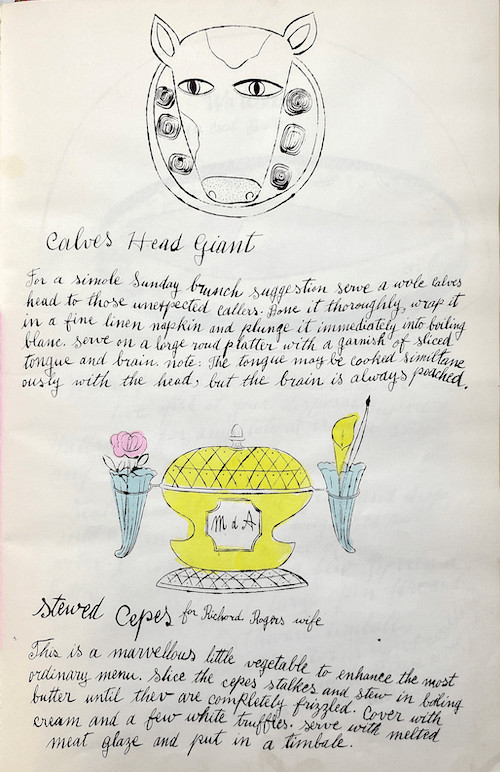 Calves Head Giant
For a simole Sunday brunch suggestion serve a wole calves
head to those unexpected callers. Bone it thoroughly, wrap it
in a fine linen napkin and plunge it immediately into boiling
blanc. serve on a large roud platter with a garnish of sliced
tongue and brain. note: The tongue may be cooked simittane
ously with the head, but the brain is always poached.
M d A
Stewed Cepes for Richard Rogers wife
This is a marvellous little vegetable to enhance the most
ordinary menu. Slice the cepes stalkes and stew in boiling
butter until thev are completly frizzled. Cover with
cream and a few white truffles. serve with melted
meat glaze and put in a timbale.